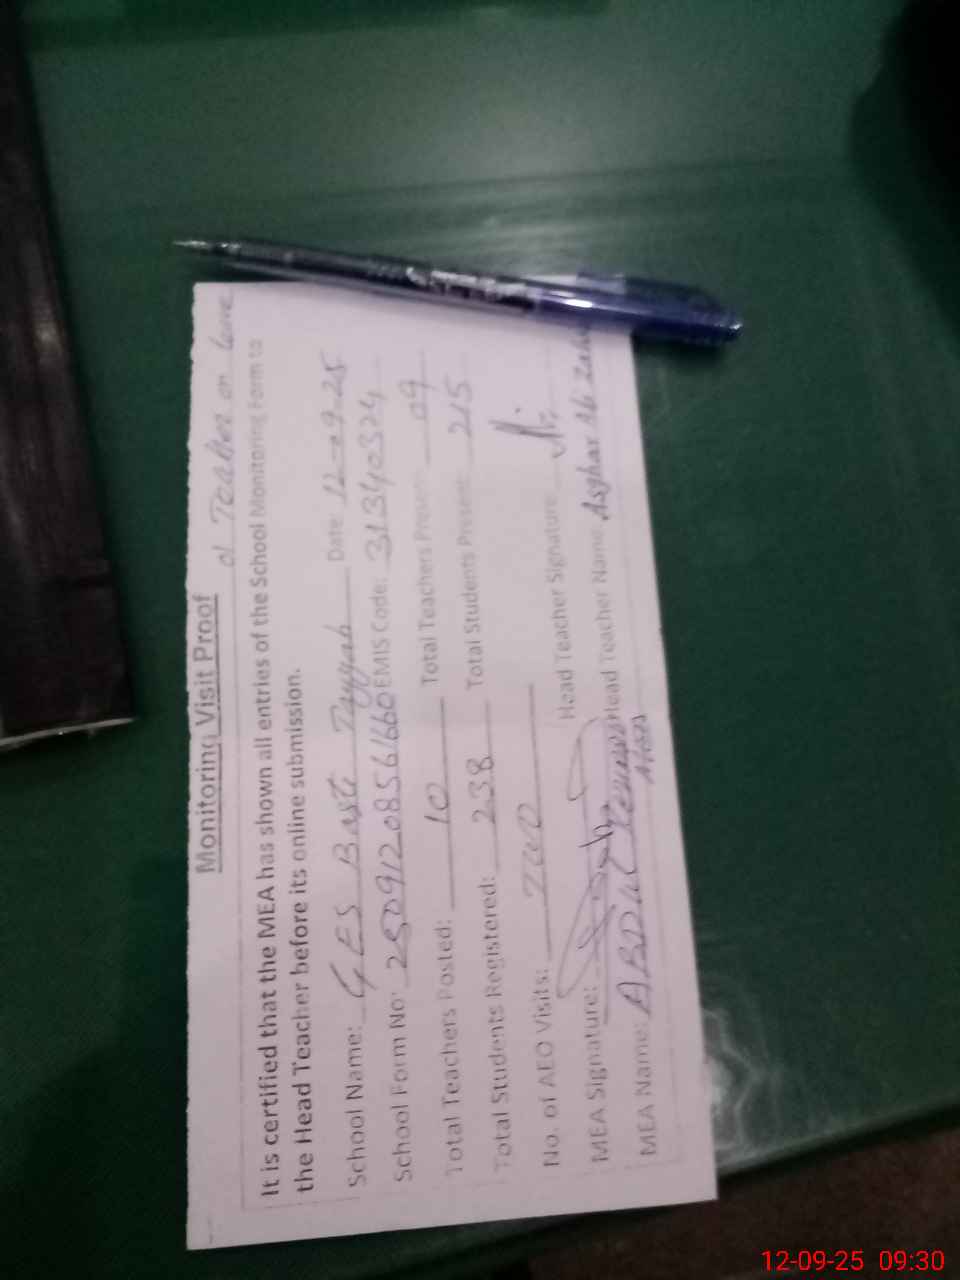 Monitoring Visit Proof
01 Teacher on leave
It is certified that the MEA has shown all entries of the School Monitoring Form to
the Head Teacher before its online submission.
School Name: GES Basti Tayyab Date 12-09-25
School Form No: EMIS Code: 31340324
Total Teachers Posted: 10 Total Teachers Present: 09
Total Students Registered: 238 Total Students Present: 215
No. of AEO Visits: zero
MEA Signature: Head Teacher Signature
MEA Name: ABDUL Head Teacher Name Asghar Ali
12-09-25 09:30